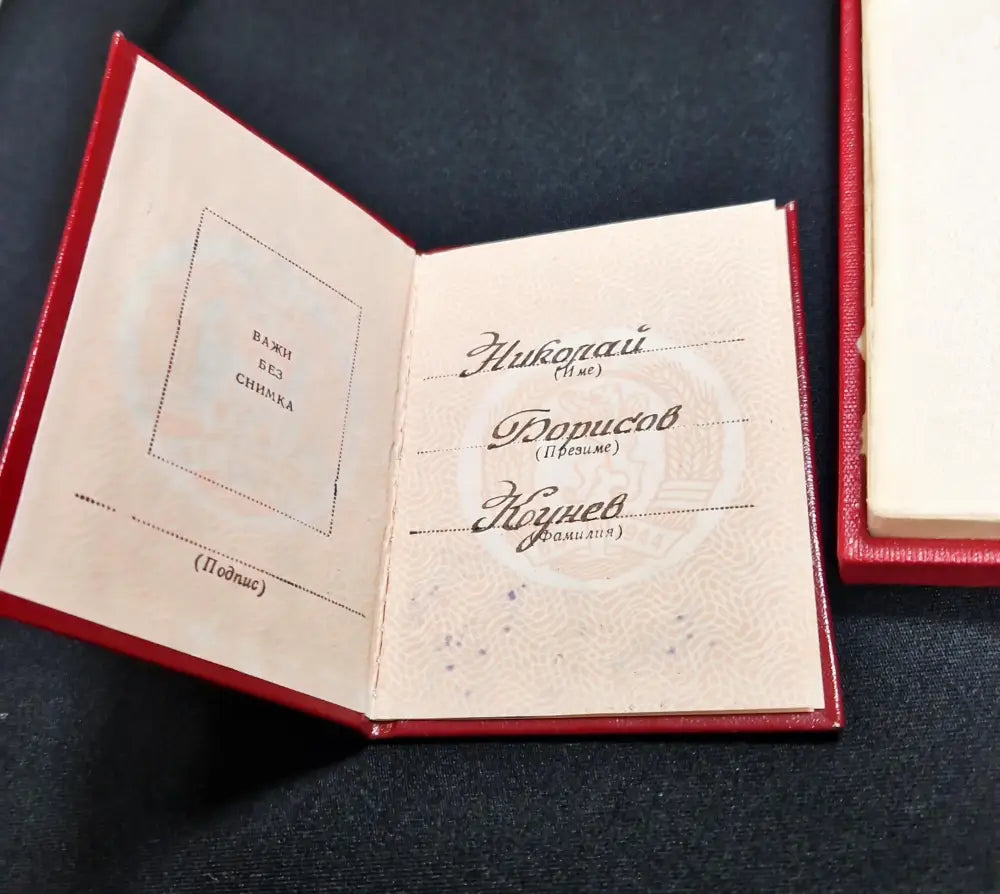 ВАЖИ
БЕЗ
СНИМКА
(Подпис)
Николай
(Име)
Борисов
(Презиме)
Кунев
(Фамилия)